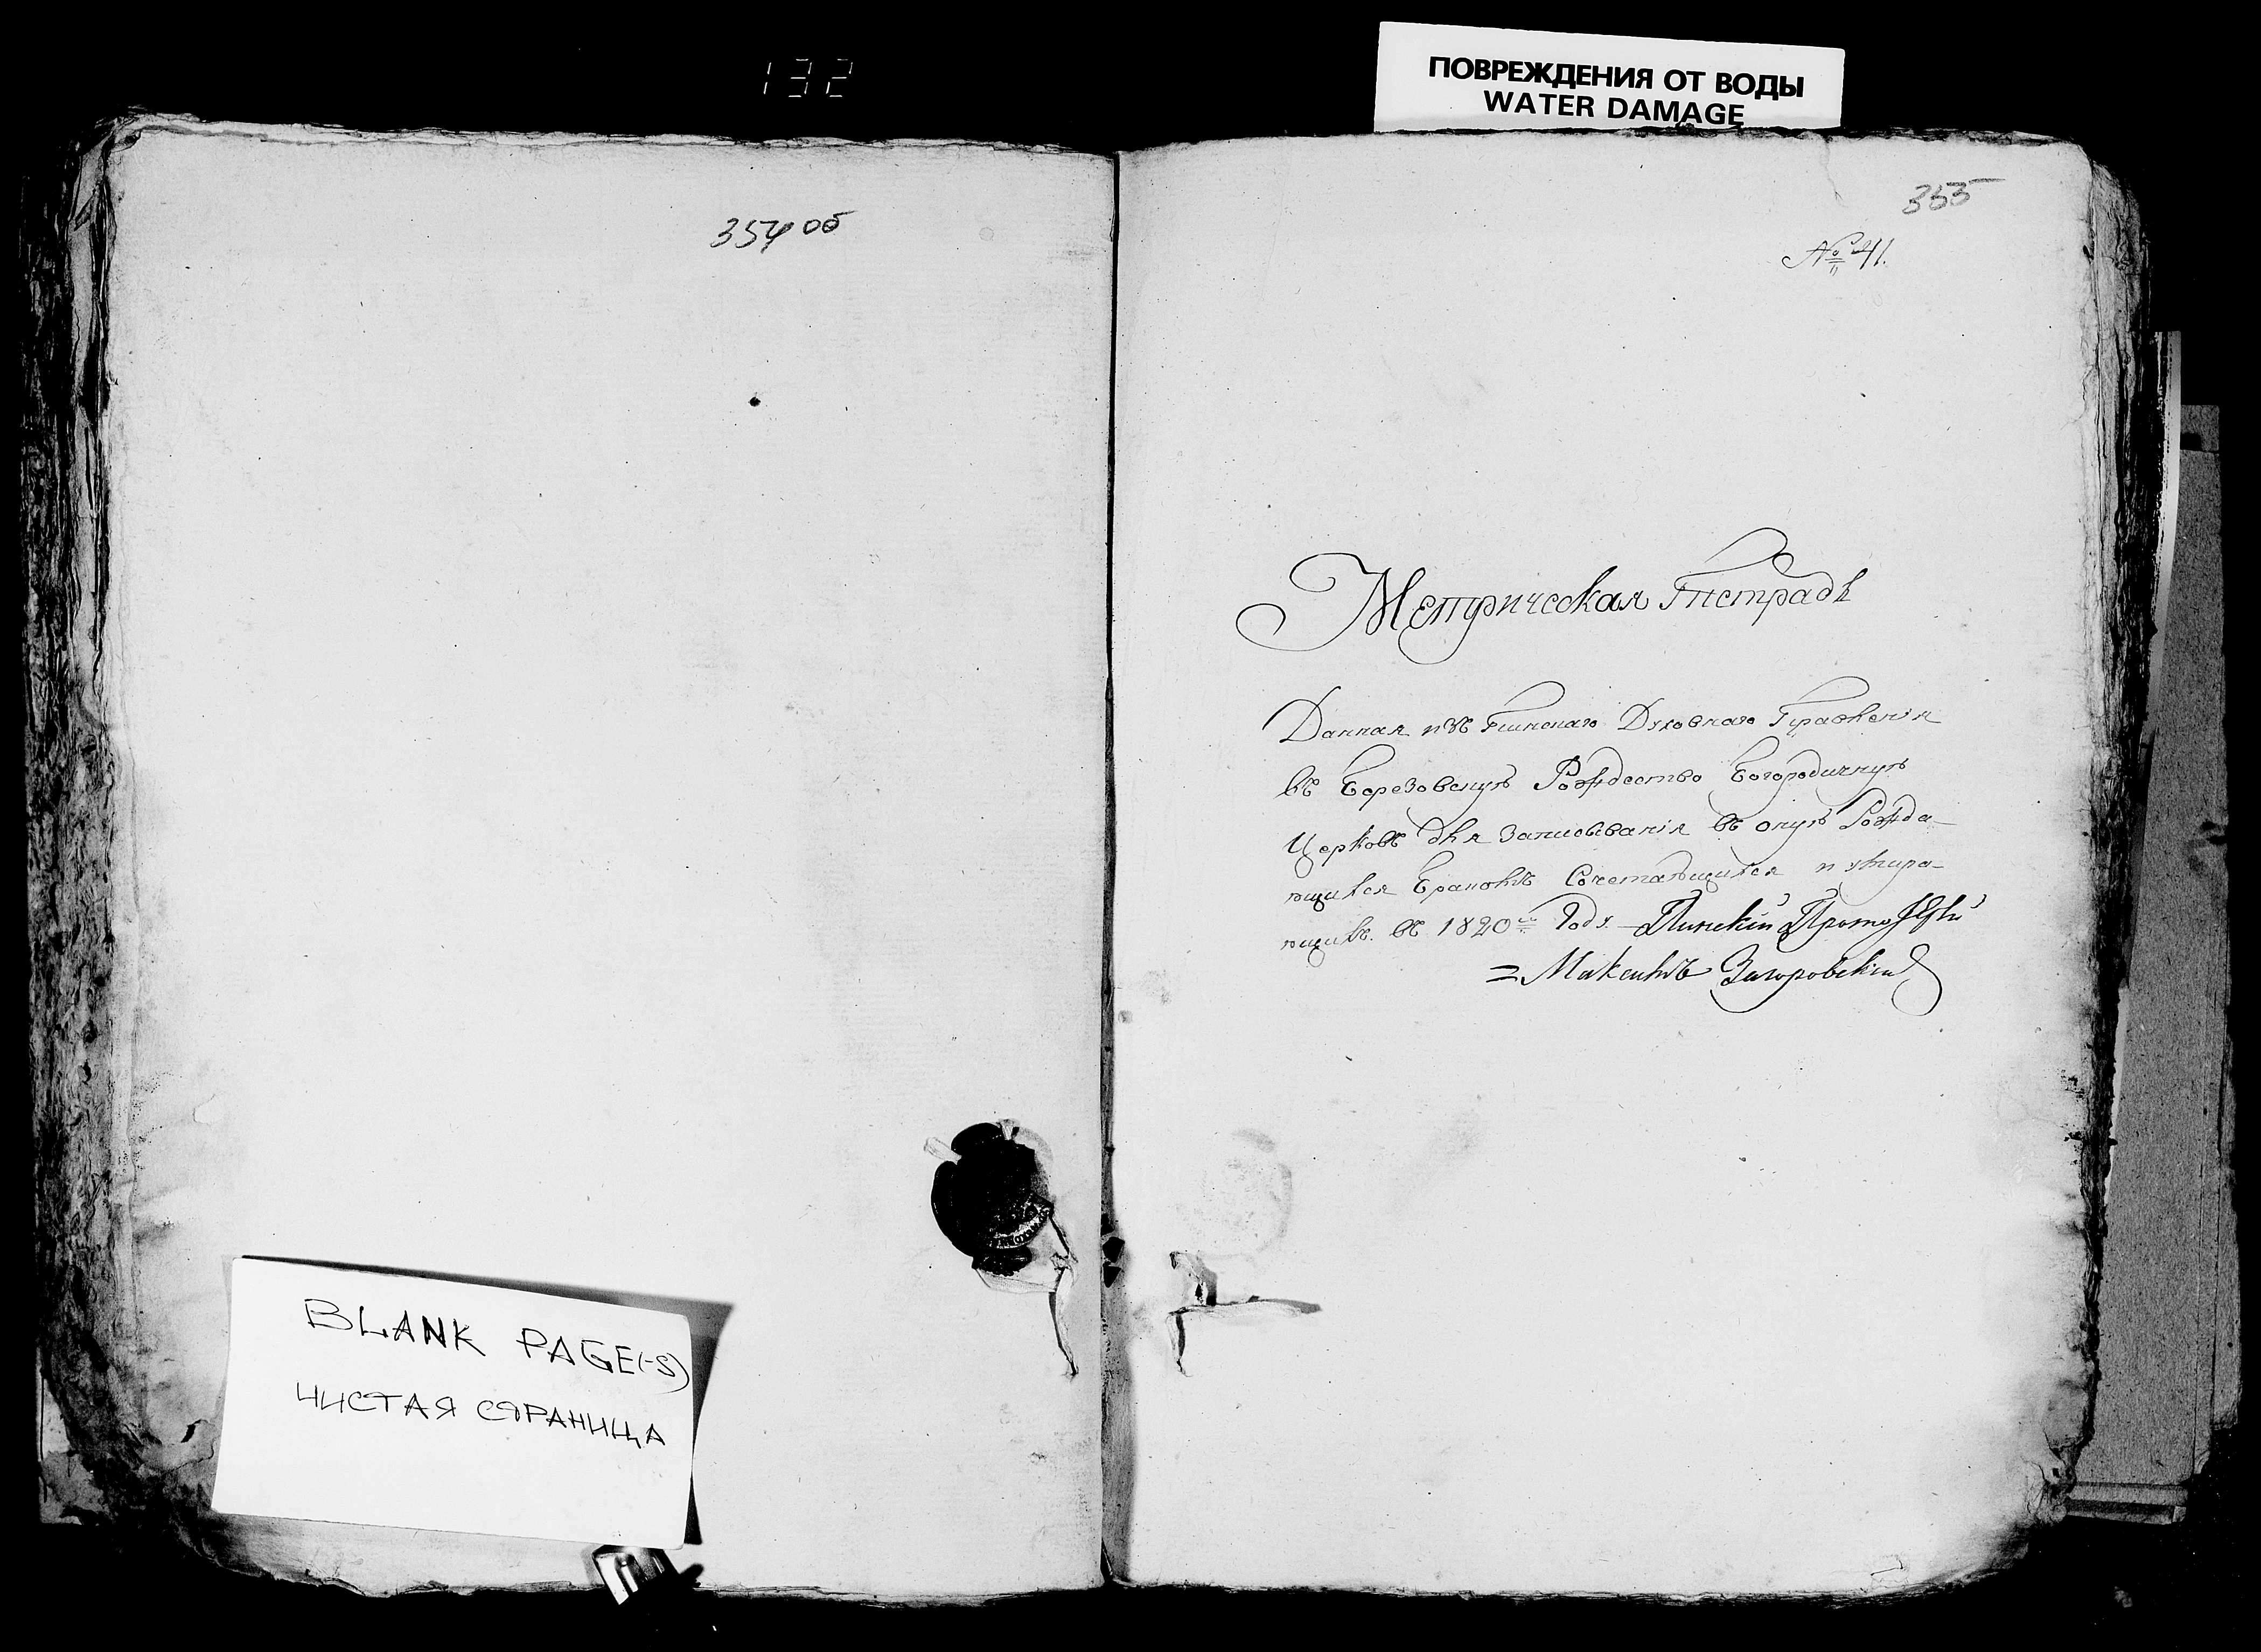 132
ПОВРЕЖДЕНИЯ ОТ ВОДЫ
WATER DAMAGE
354 об
355
№ 41.
Метрическая Тетрадь
Данная изъ Пинскаго Духовнаго Правленія
въ Березовскую Рождество Богородичную
Церковъ для записыванія въ оную Рожда-
ющихся Бракомъ Сочетающихся и умира-
ющихъ. въ 1820м Году. Пинскій
Максимъ Загоровскій
BLANK PAGE(-S)
ЧИСТАЯ СТРАНИЦА